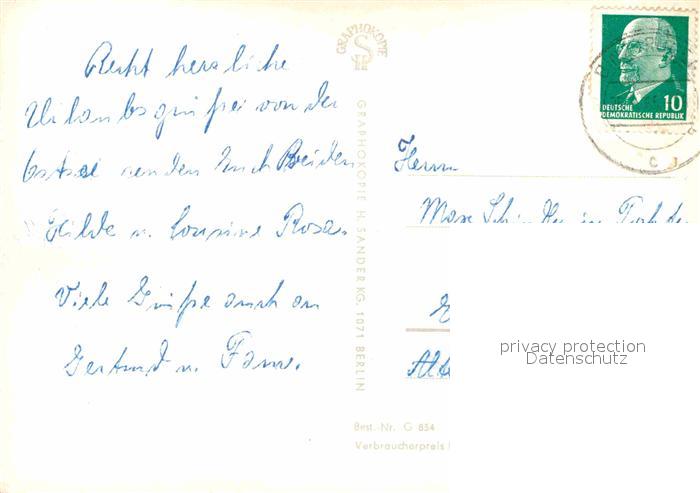 Recht herzliche
Urlaubsgrüße von der
Ostsee senden Euch Beiden
Hilde u. Rosa.
Viele Grüße auch an
Gertrud u. Fam.
GRAPHOKOPIE
GRAPHOKOPIE H. SANDER KG, 1071 BERLIN
DEUTSCHE
DEMOKRATISCHE REPUBLIK
10
Herrn
Max
privacy protection
Datenschutz
Best.-Nr. G 854
Verbraucherpreis